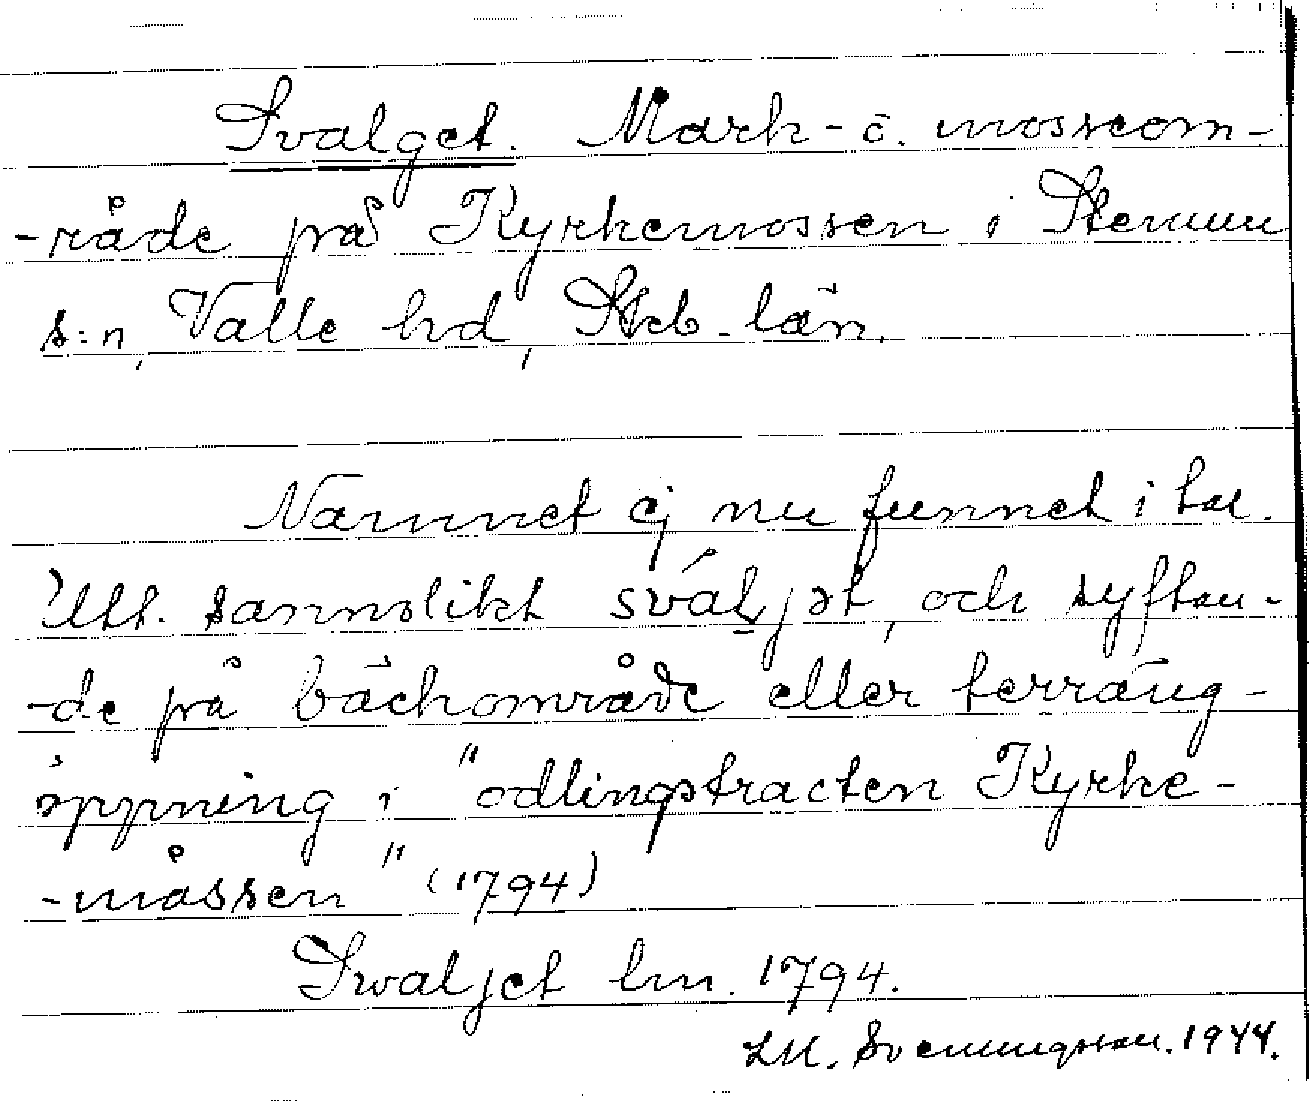 Svalget. Mark- o. mosseom-
-råde på Kyrkemossen i Stenum
s:n, Valle hd, Skb-län.
Namnet ej nu funnet i tal.
Utt. sannolikt sväljǝt, och syftan-
-de på bäckområde eller terräng-
öppning i "odlingstracten Kyrke-
-måssen" (1794)
Swaljet lm. 1794.
LM. Svenungsson. 1944.